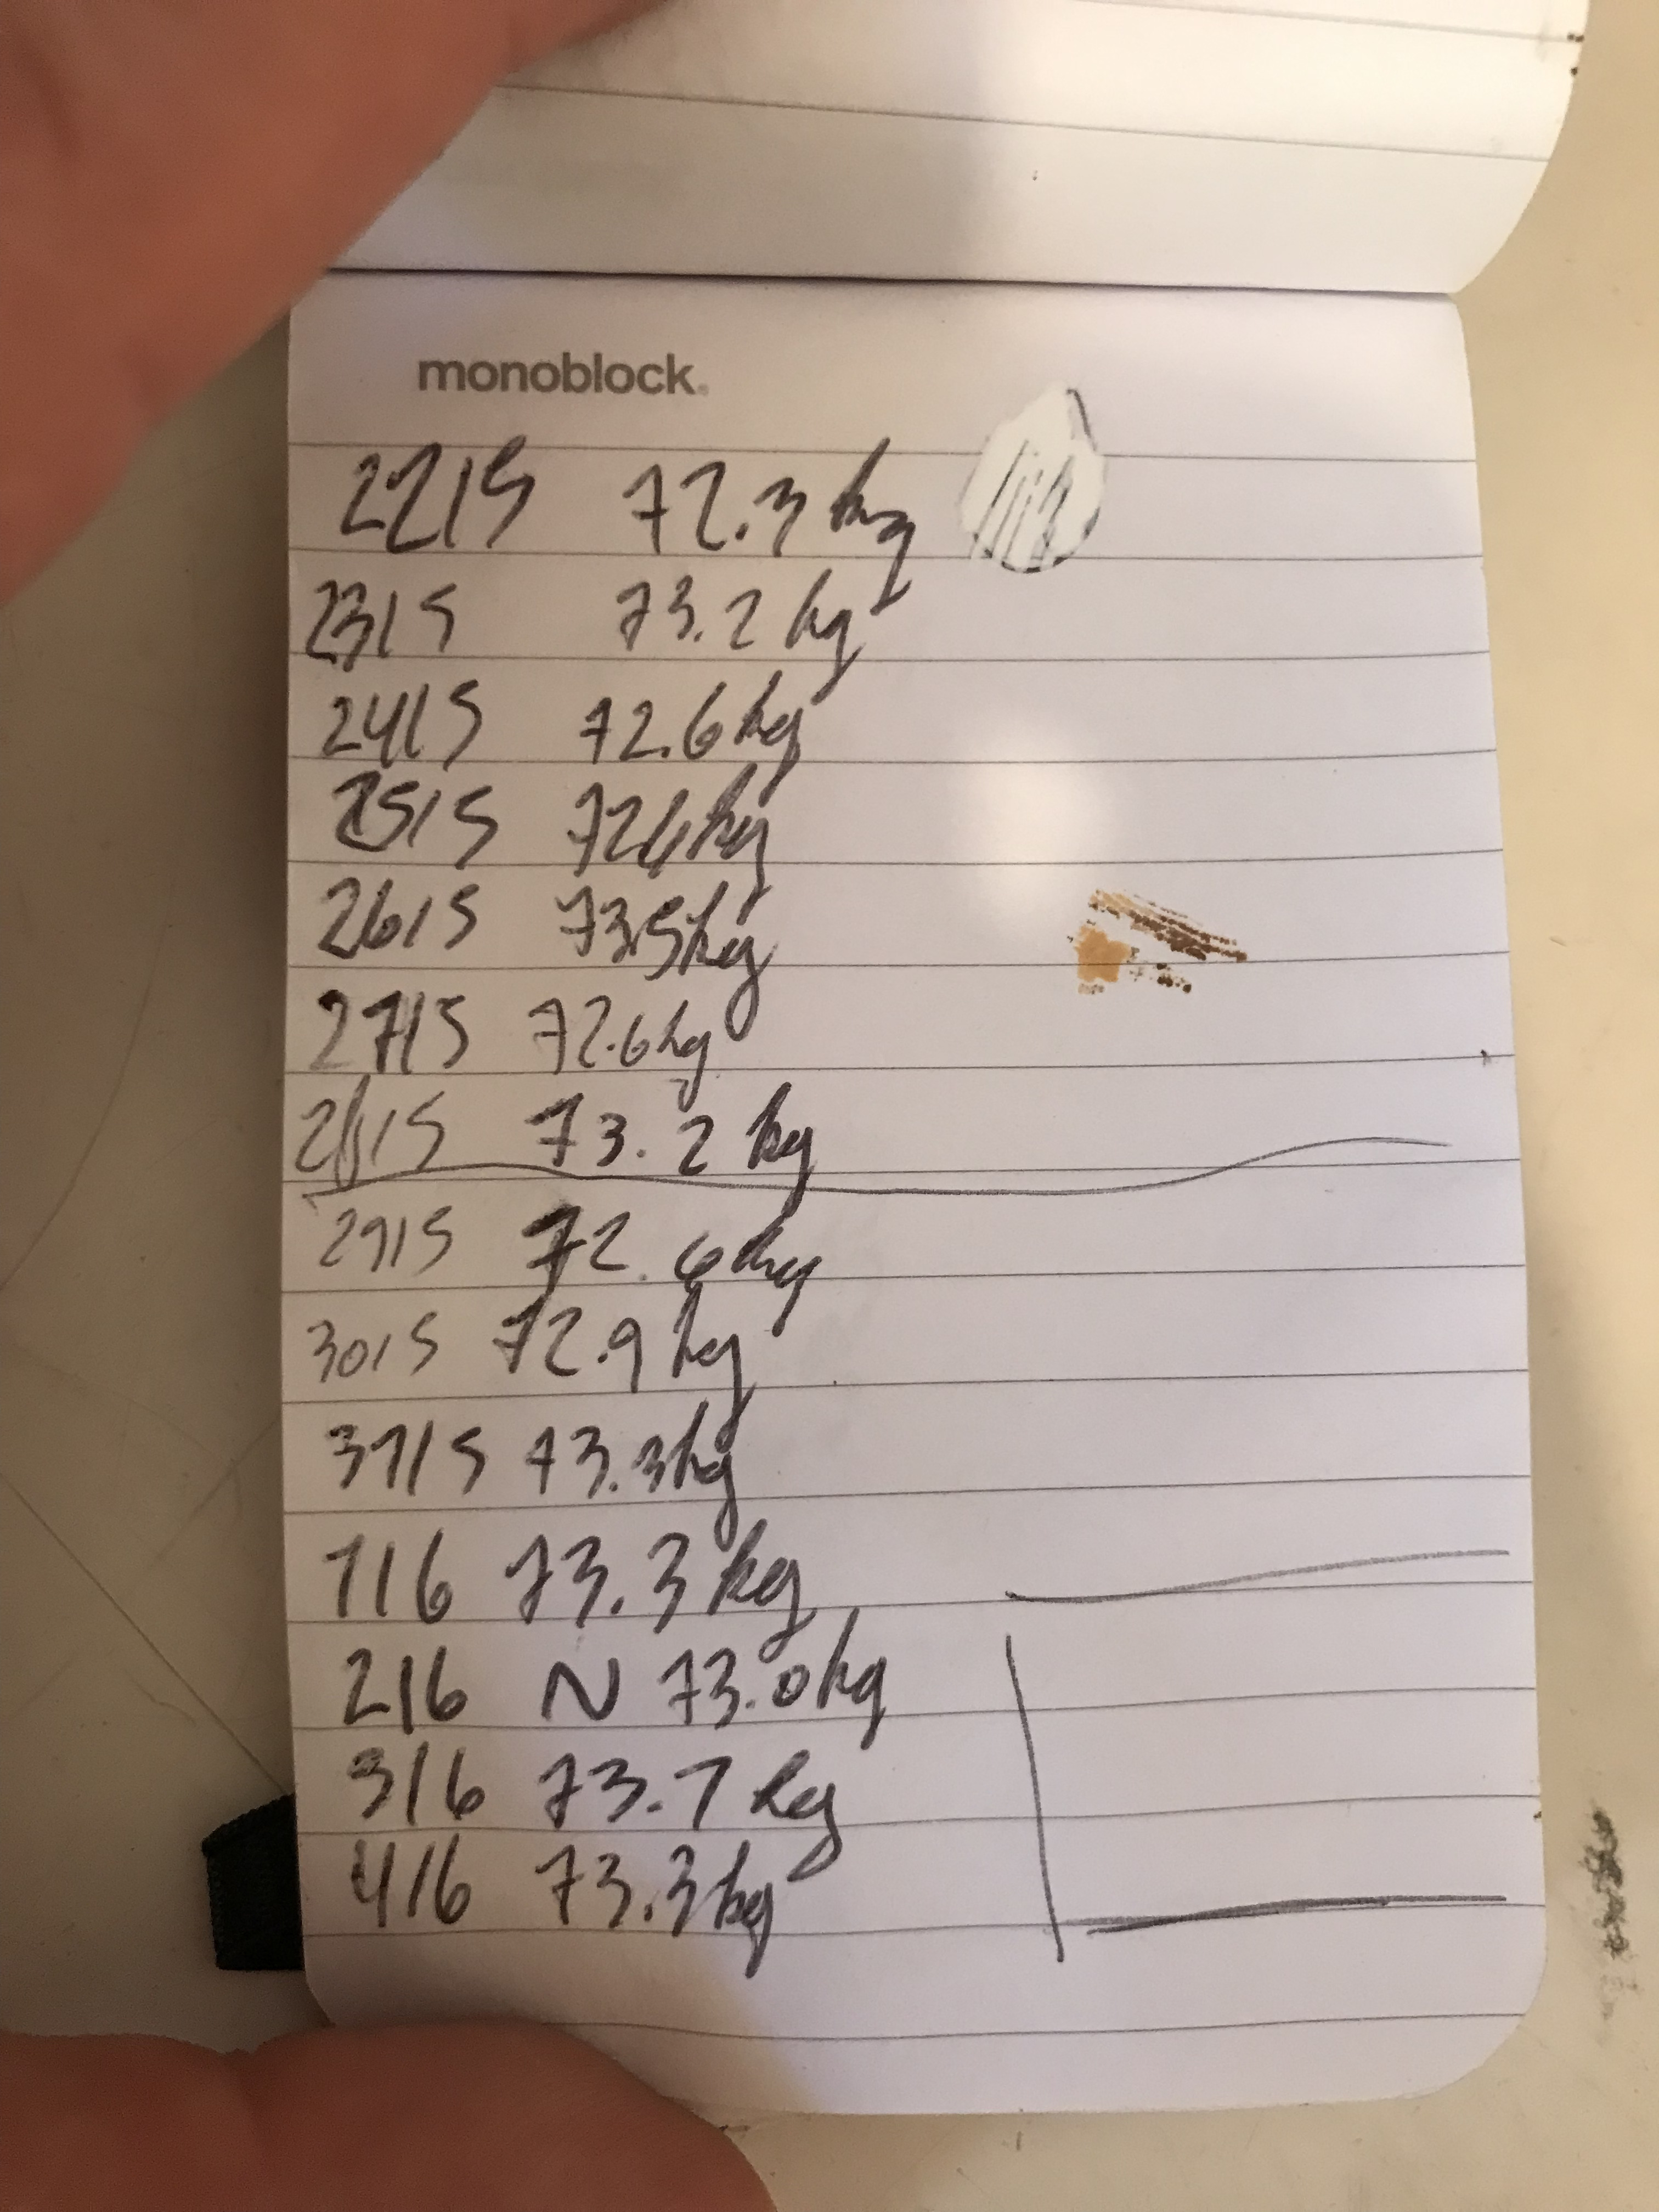 monoblock.
22/5 72.3 kg
23/5 73.2 kg
24/5 72.6 kg
25/5 kg
26/5 73.5 kg
27/5 72.6 kg
28/5 73.2 kg
29/5 72.6 kg
30/5 72.9 kg
31/5 73.3 kg
1/6 73.3 kg
2/6 N 73.0 kg
3/6 73.7 kg
4/6 73.3 kg